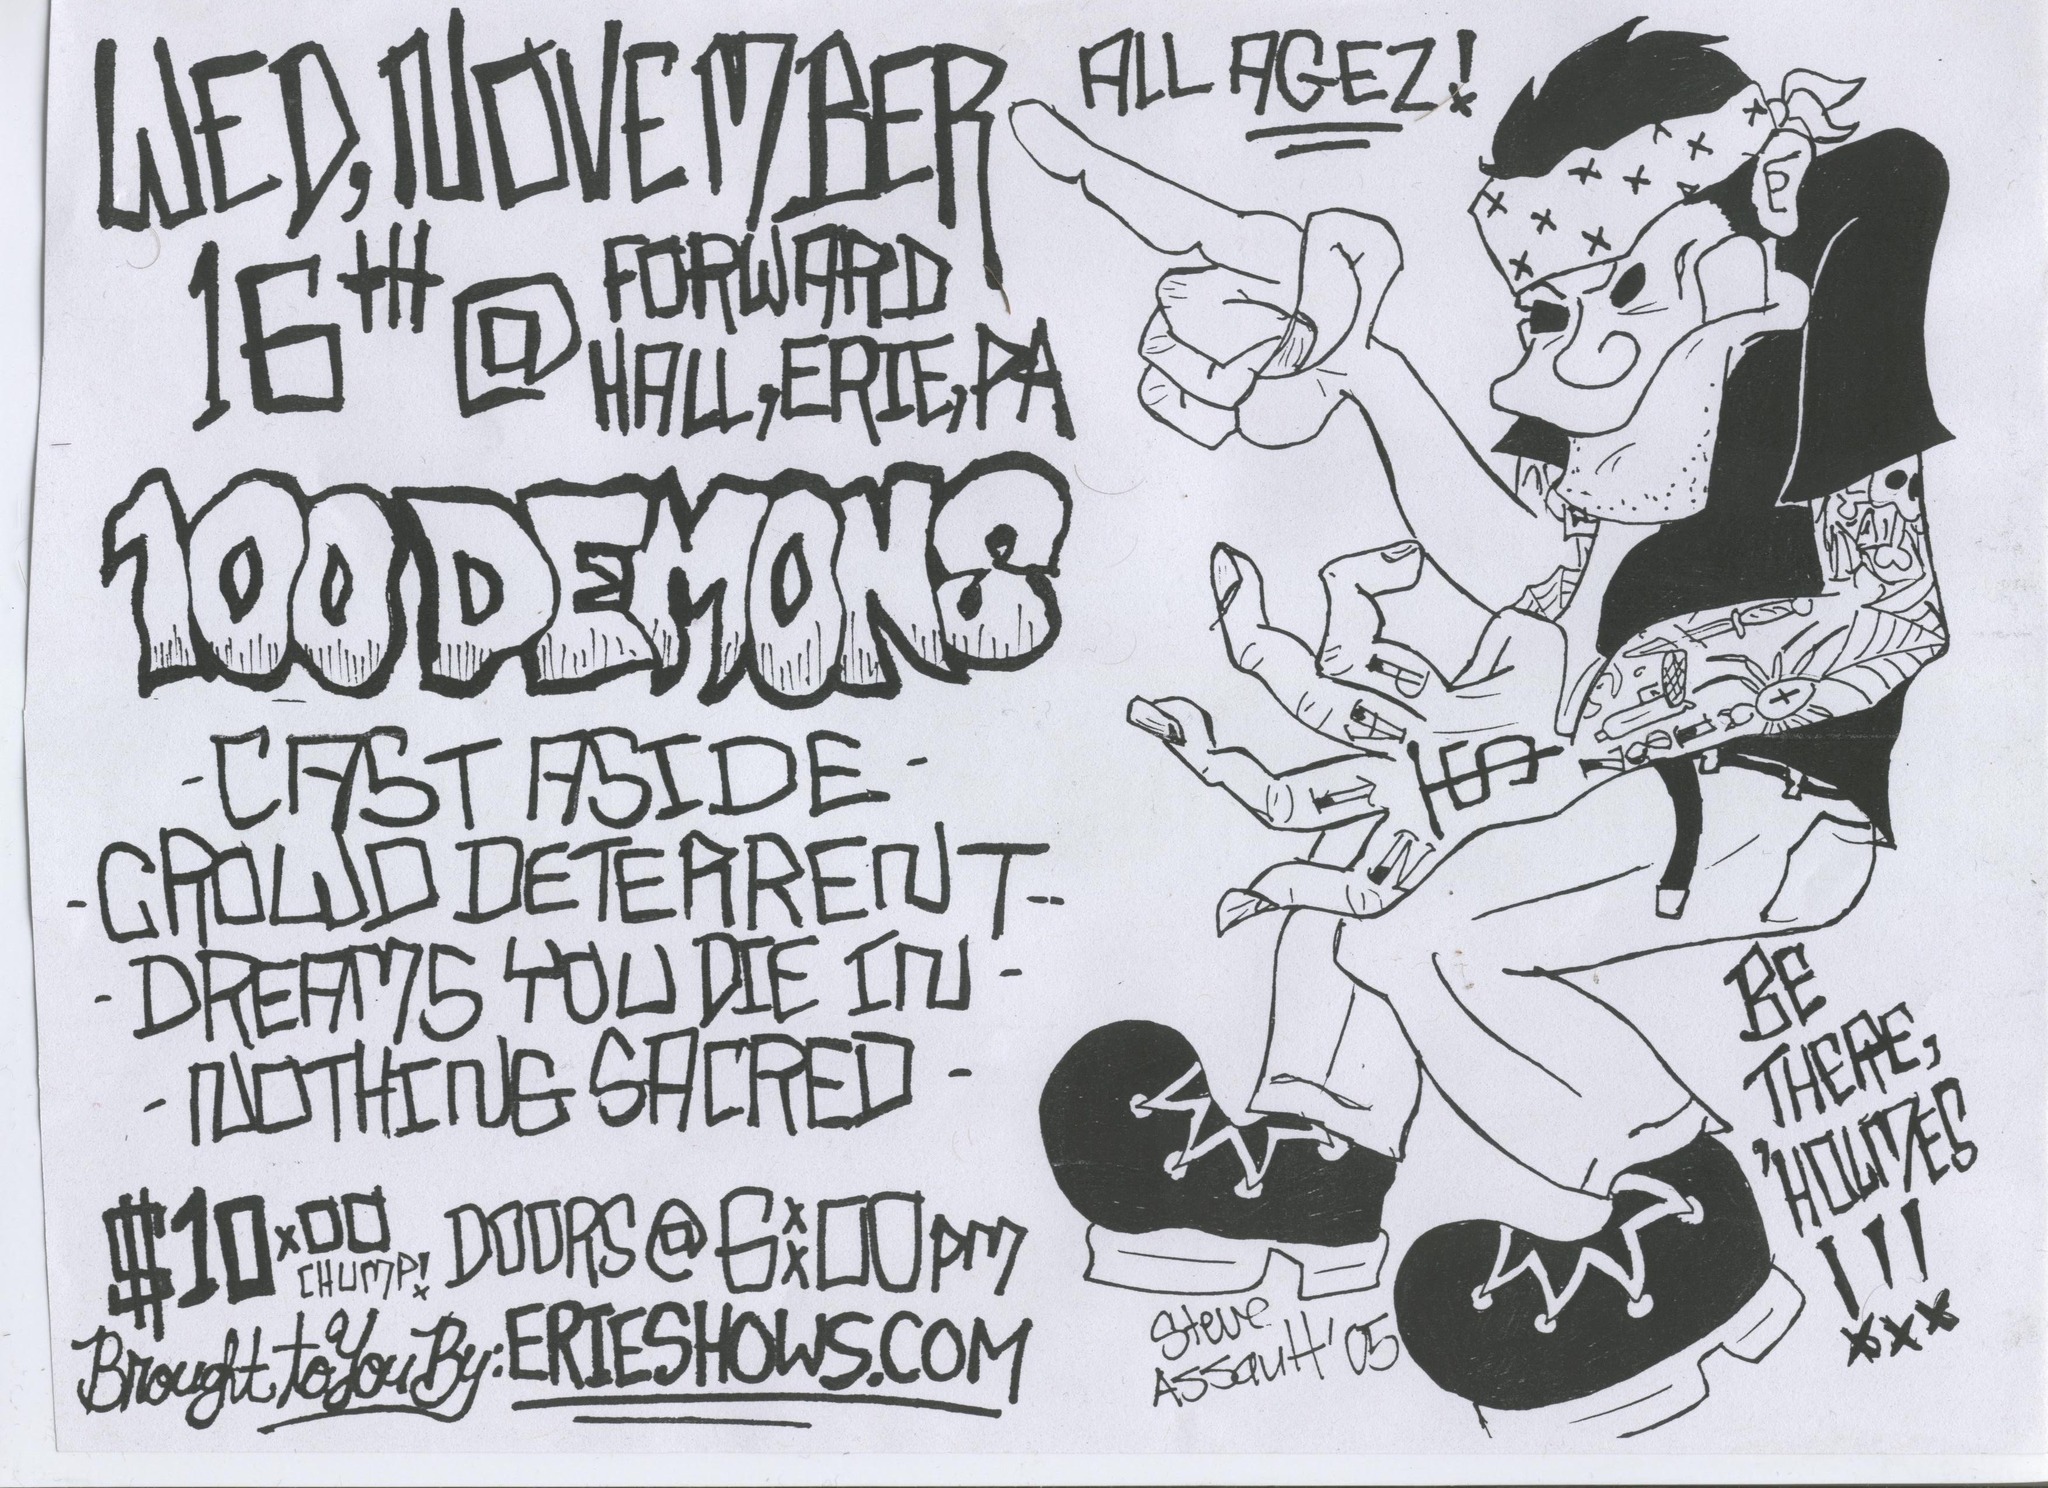 WED, NOVEMBER
16TH @ FORWARD
HALL, ERIE, PA
ALL AGEZ!
100 DEMONS
- CAST ASIDE -
- CROWD DETERRENT -
- DREAMS YOU DIE IN -
- NOTHING SACRED -
$10.00 CHUMP! DOORS @ 6:00 pm
Brought to You By: ERIESHOWS.COM
PAIN
BE
THERE,
'HOLMES
!!!
xxx
Steve
Assault '05